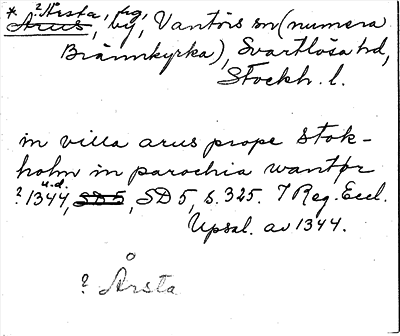 * ?Årsta, fvg,
Arus, by, Vantörs sn (numera
Brännkyrka), Svartlösa hd,
Stockh. l.
in villa arus prope Stok-
holm in parochia wantør
u.d.
? 1344, SD 5, SD 5, s. 325. I Reg. Eccl.
Upsal. av 1344.
? Årsta